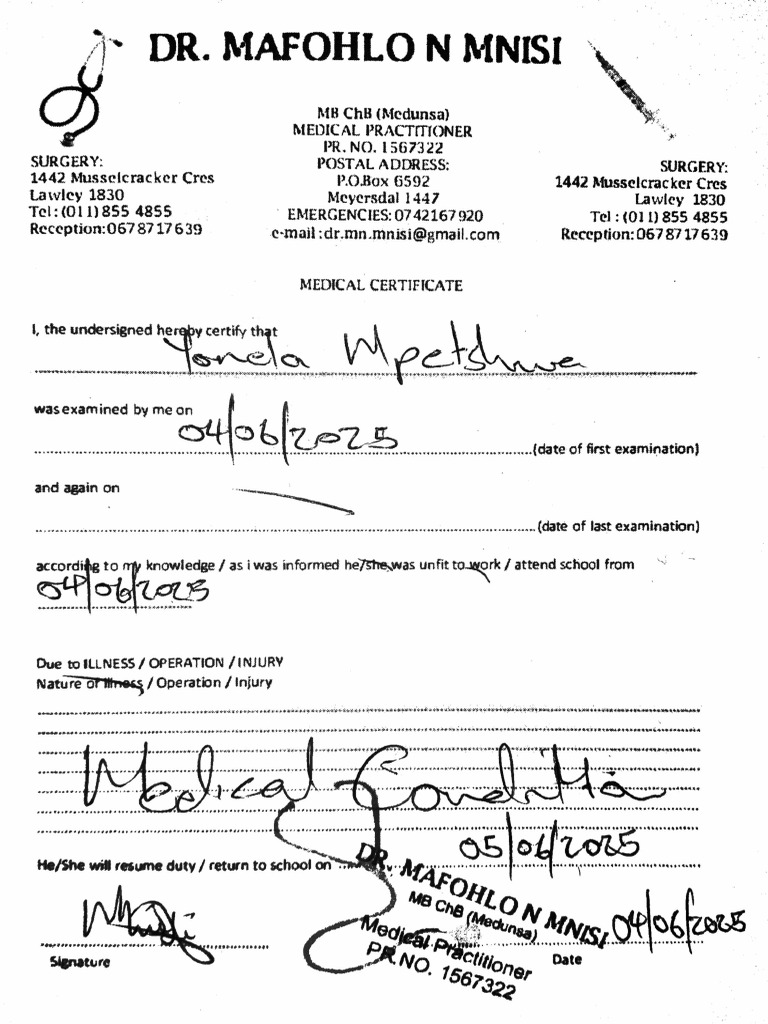 DR. MAFOHLO N MNISI
MB ChB (Medunsa)
MEDICAL PRACTITIONER
PR. NO. 1567322
POSTAL ADDRESS:
P.O.Box 6592
Meyersdal 1447
EMERGENCIES: 0742167920
e-mail :dr.mn.mnisi@gmail.com
SURGERY:
1442 Musselcracker Cres
Lawley 1830
Tel : (011) 855 4855
Reception: 0678717639
SURGERY:
1442 Musselcracker Cres
Lawley 1830
Tel : (011) 855 4855
Reception: 0678717639
MEDICAL CERTIFICATE
I, the undersigned hereby certify that
Yonela Mpetshwa
was examined by me on
04/06/2025
(date of first examination)
and again on
(date of last examination)
according to my knowledge / as i was informed he/she was unfit to work / attend school from
04/06/2025
Due to ILLNESS / OPERATION / INJURY
Nature of Illness / Operation / Injury
Medical Condition
05/06/2025
He/She will resume duty / return to school on
DR. MAFOHLO N MNISI
MB ChB (Medunsa)
Medical Practitioner
PR.NO. 1567322
04/06/2025
Signature
Date